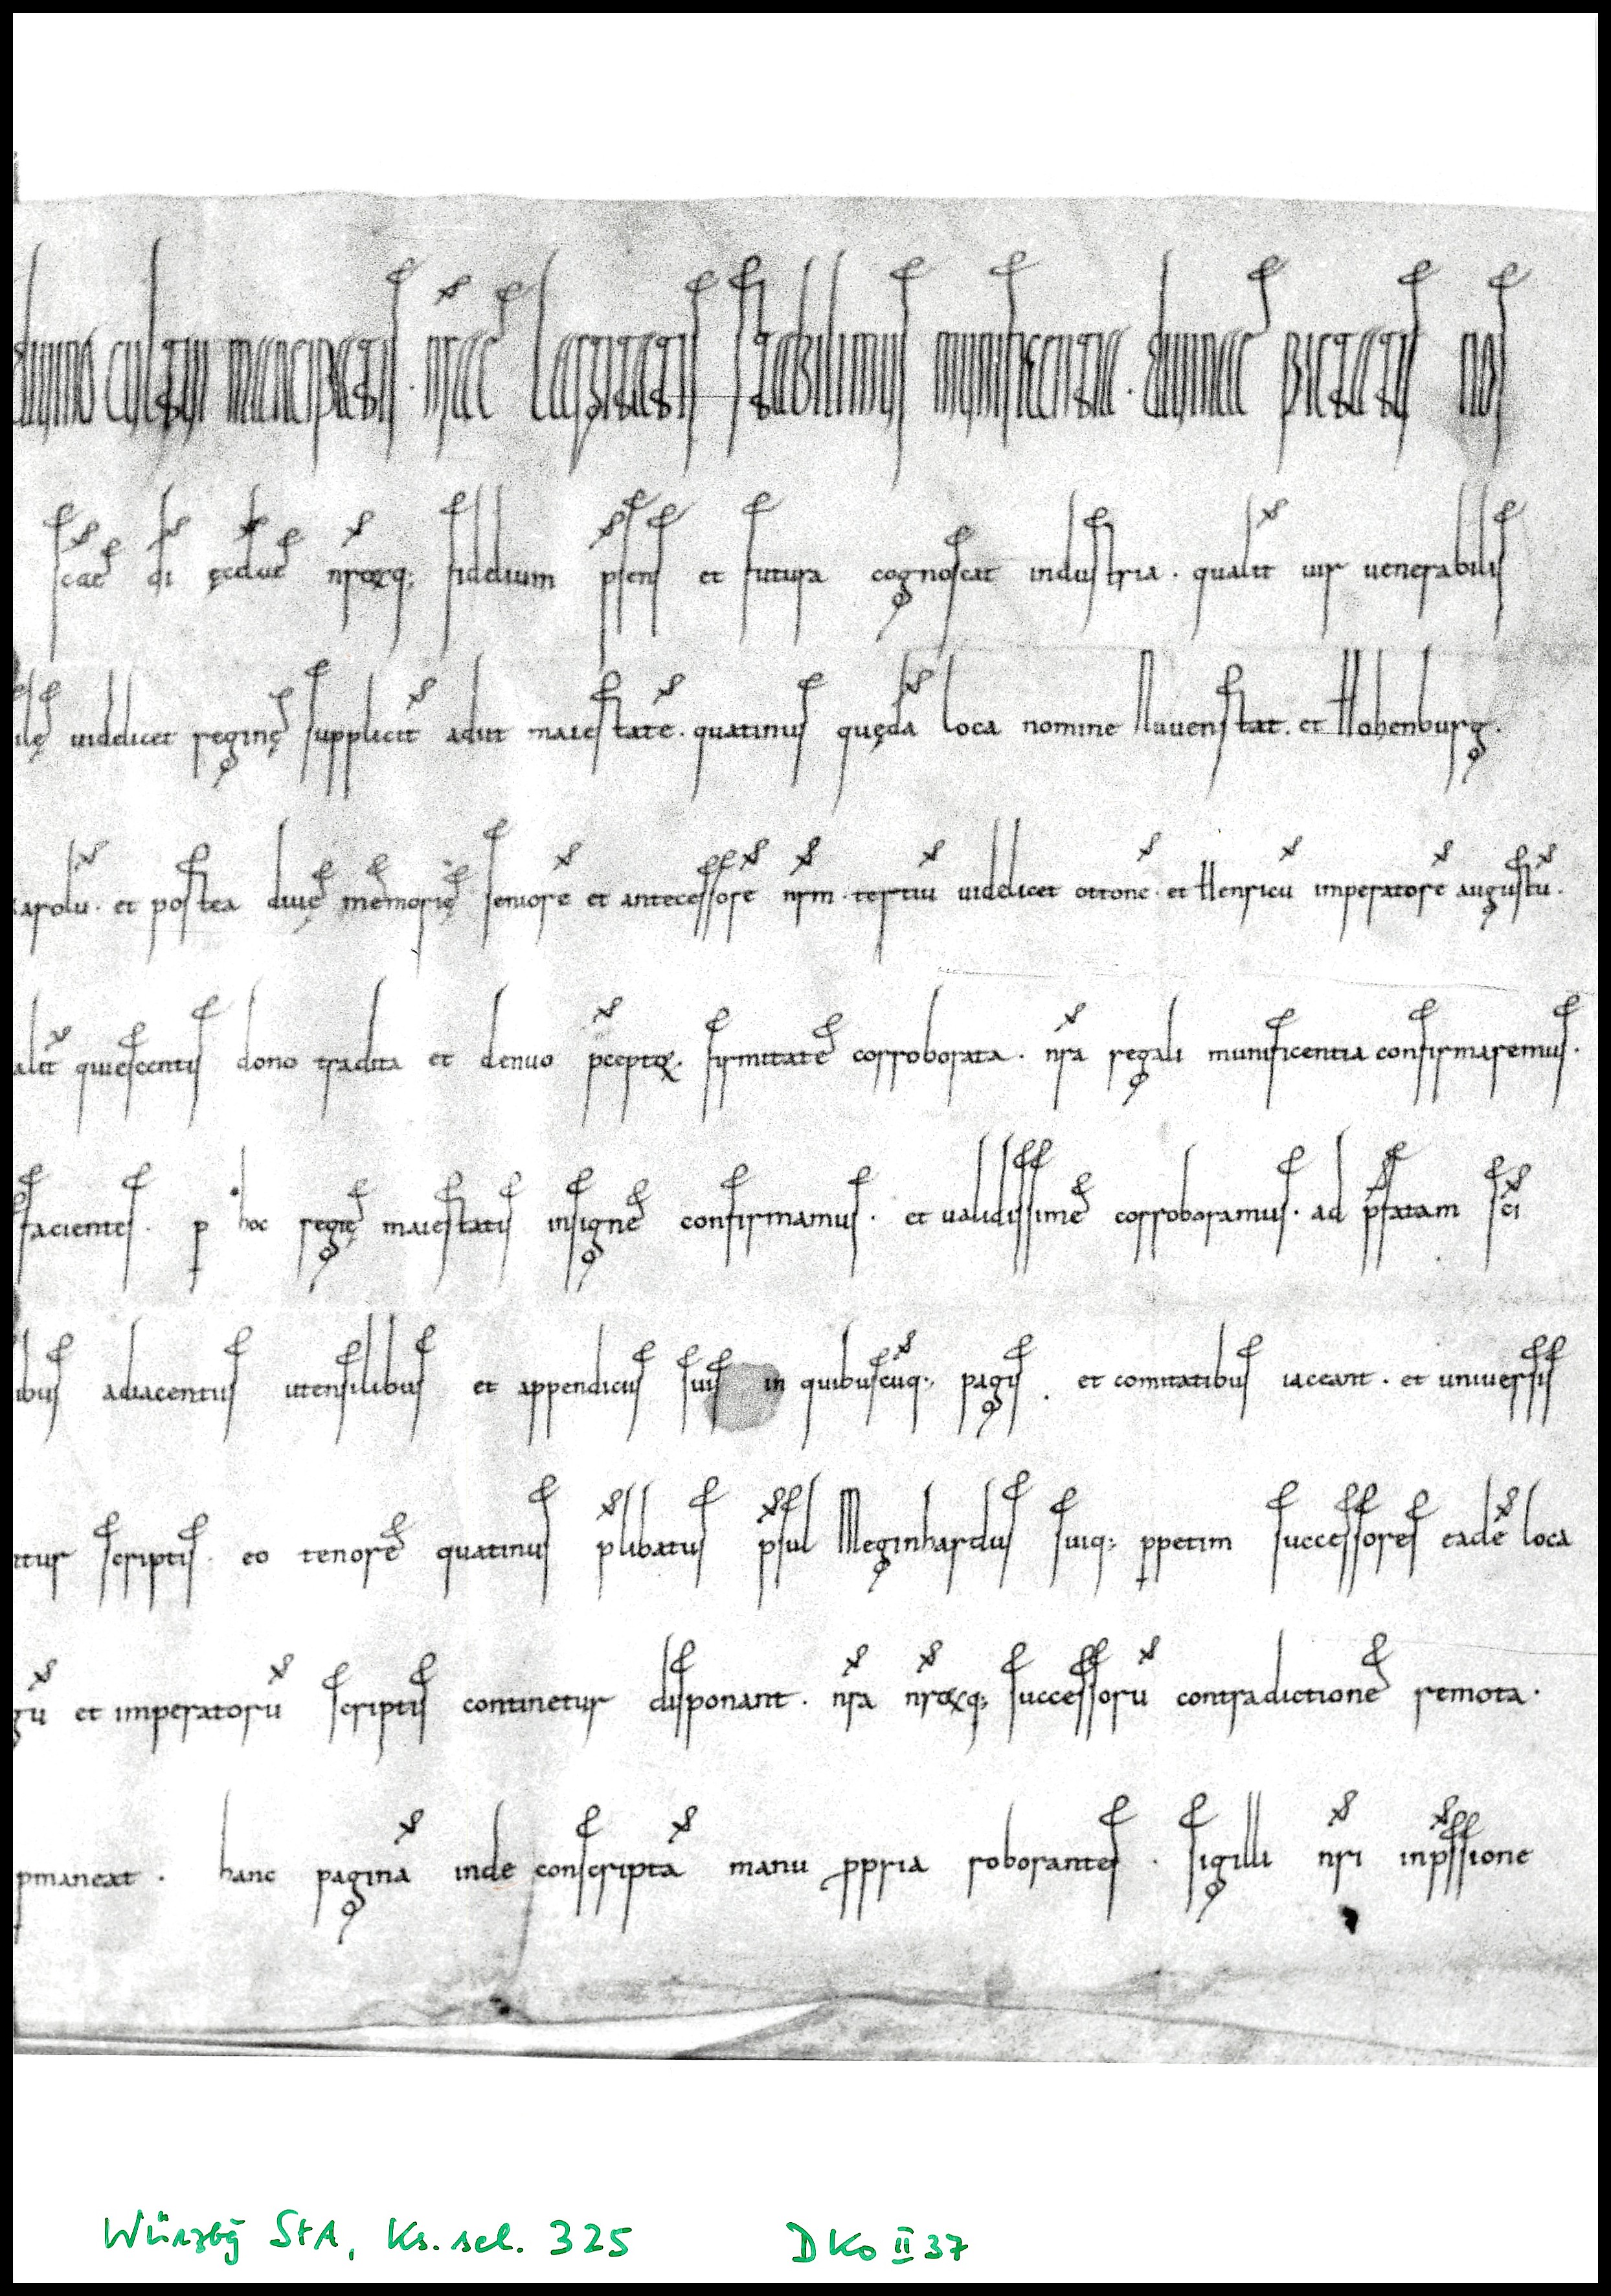 diuino cultui mancipatis. nr̄ae largitatis stabilimus munificentia. diuinae pietatis nos
sc̄ae dī ęccl̄ae nr̄orūq; fidelium p̄sens et futura cognoscat industria. qualit̄ uir uenerabilis
uidelicet reginę supplicit̄ adiit maiestatē. quatinus quędā loca nomine Nuuenstat. et Hohenburg.
karolū. et postea diuę memorię seniorē et antecessorē nr̄m. tertiū uidelicet ottonē. et Heinricū imperatorē augustū.
alit̄ quiescentis dono tradita et denuo p̄ceptorū. firmitate corroborata. nr̄a regali munificentia confirmaremus.
facientes. p hoc regię maiestatis insigne confirmamus. et ualidissime corroboramus. ad p̄fatam sc̄i
ibus adiacentiis utensilibus et appendiciis suis in quibuscūq; pagis. et comitatibus iaceant. et uniuersis
ntur scriptis. eo tenore quatinus p̄libatus p̄sul Meginhardus suiq; ppetim successores eadē loca
gū et imperatorū scriptis continetur disponant. nr̄a nr̄orūq; successorū contradictione remota.
pmaneat. hanc paginā inde conscriptā manu ppria roborantes. sigilli nr̄i inp̄ssione
Würzbg StA, Ks. sel. 325 DKo II 37